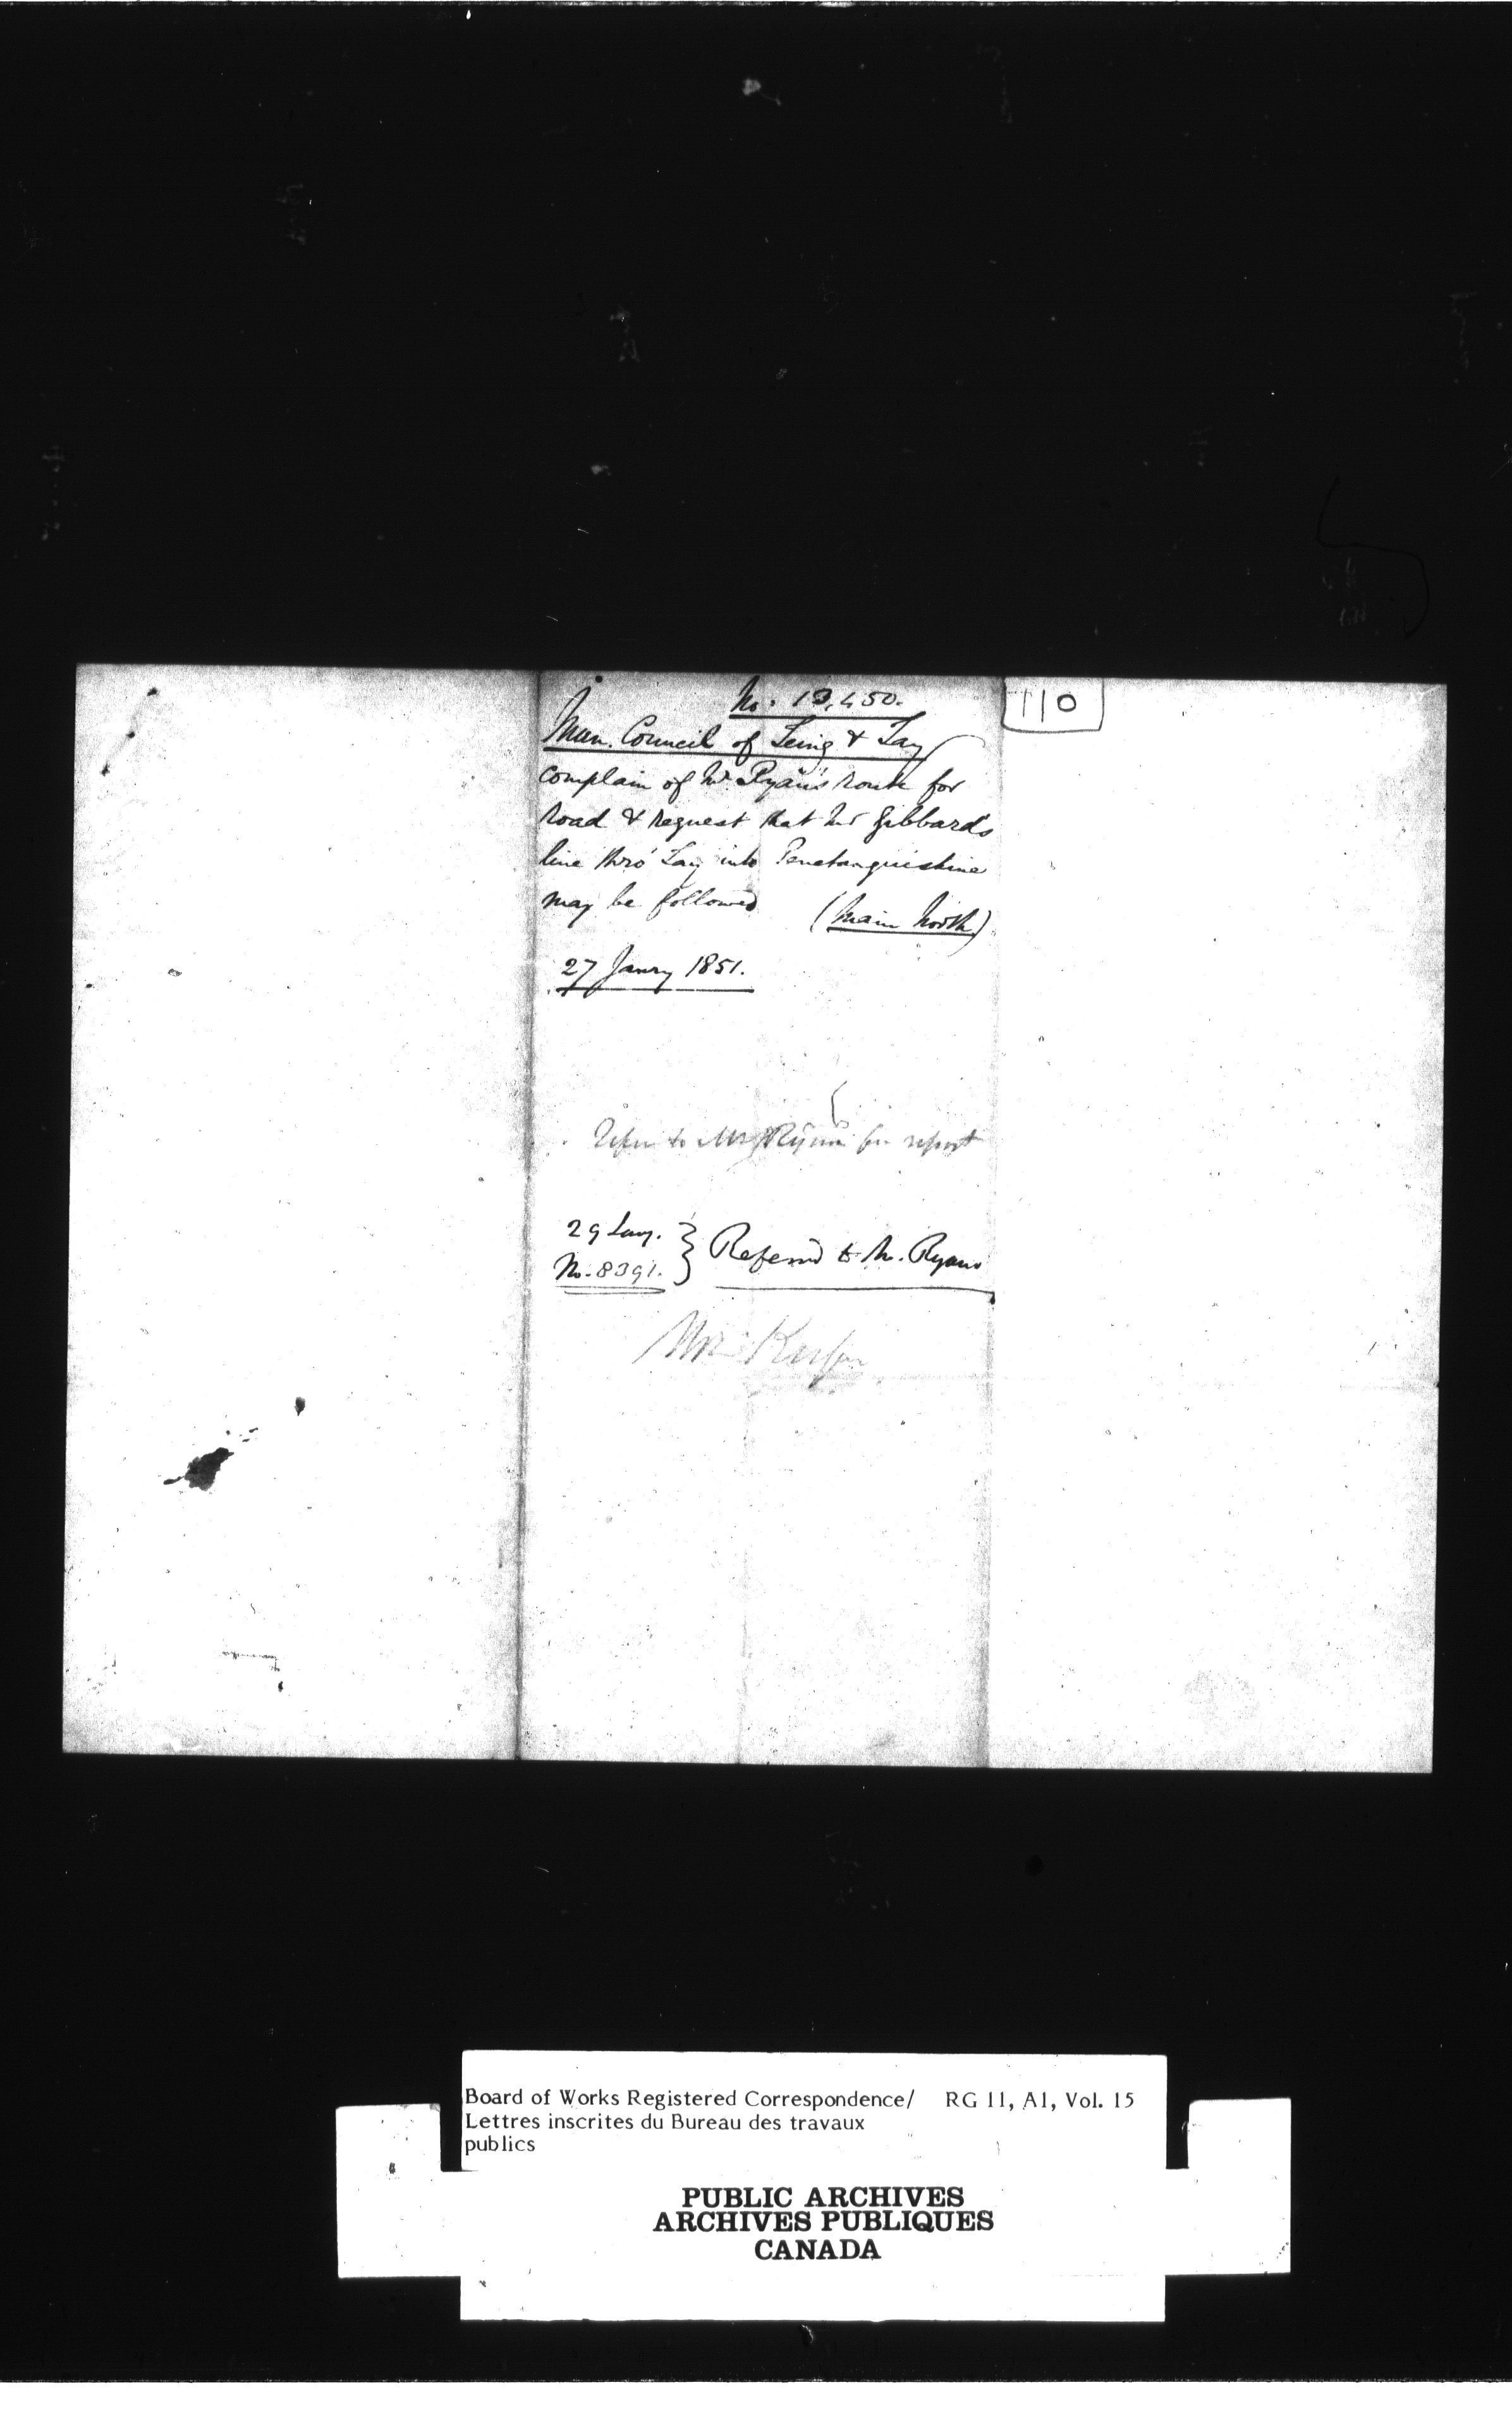 No. 13,450.
110
Mun. Council of Teing & Tay
complain of Mr. Ryan's route for
road & request that Mr Gibbard's
line thro' Tay into Penetanguishine
may be followed
(Main North)
27 Janry 1851.
Refer to Mr Ryan for report
29 Jany.
No. 8391. } Referred to Mr. Ryan
Mr.
Board of Works Registered Correspondence/ RG 11, A1, Vol. 15
Lettres inscrites du Bureau des travaux
publics
PUBLIC ARCHIVES
ARCHIVES PUBLIQUES
CANADA